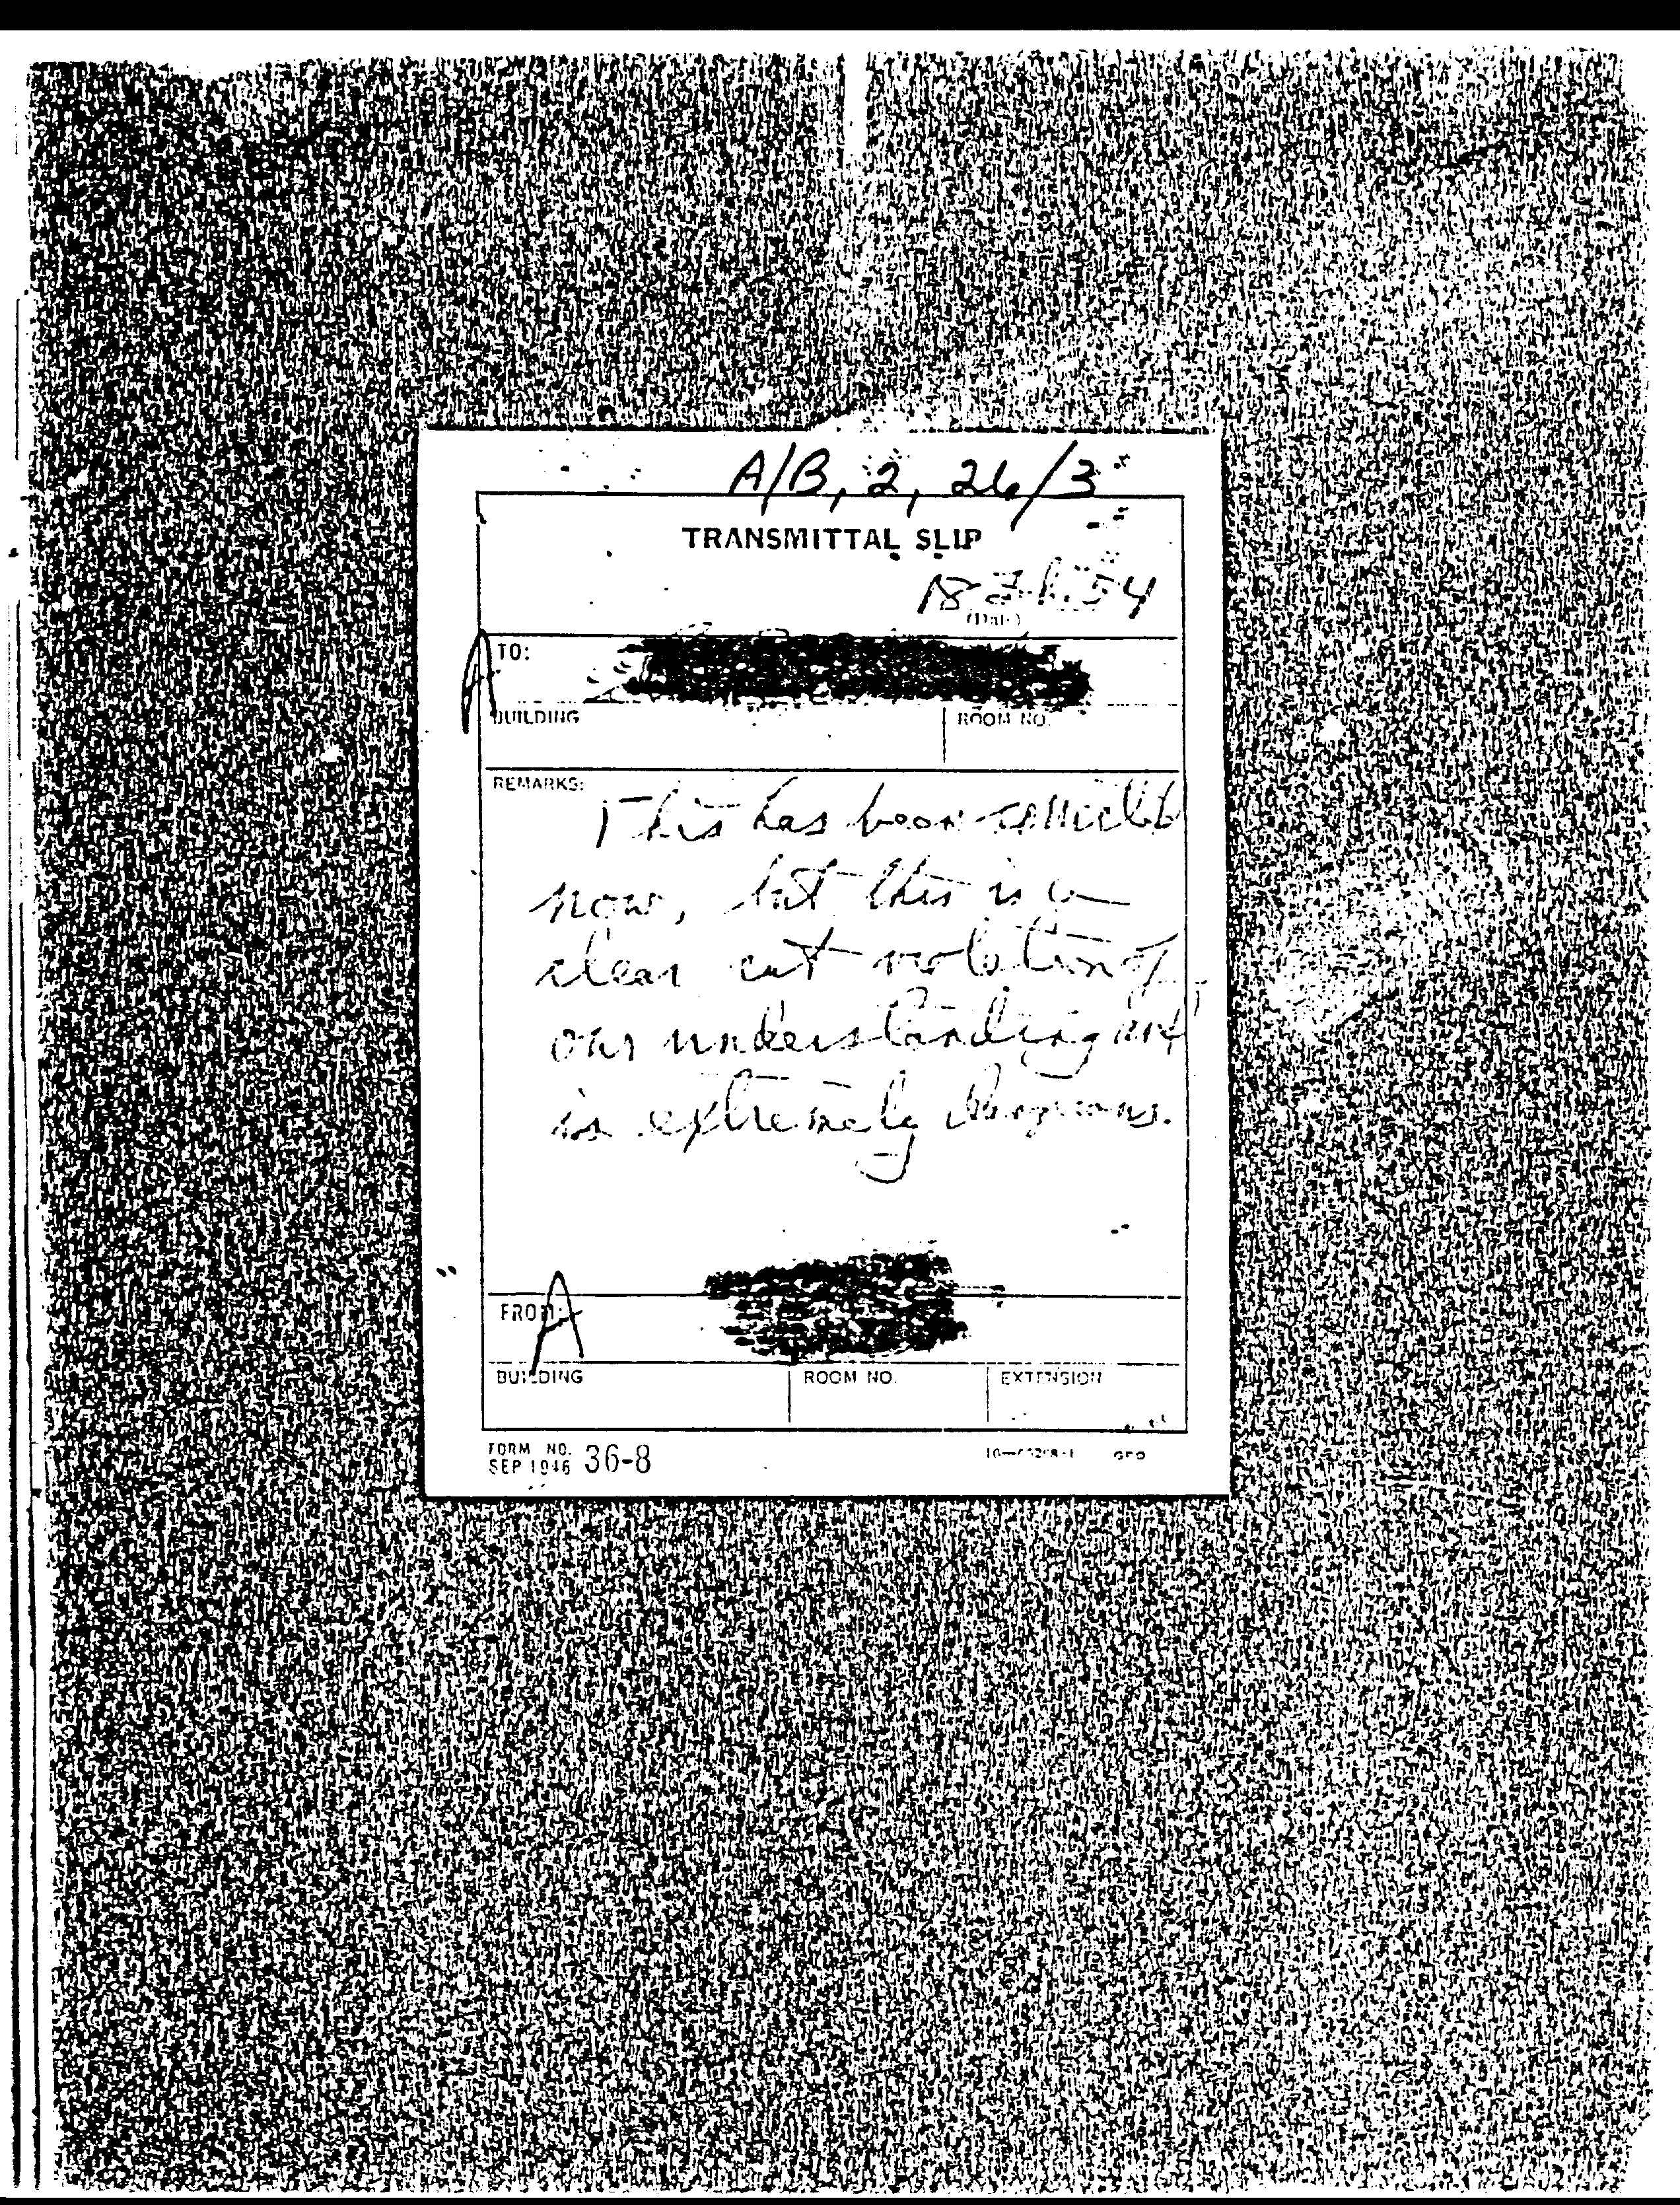 A/B, 2, 26/3
TRANSMITTAL SLIP
18 Feb. 54
(Date)
A
TO:
BUILDING ROOM NO.
REMARKS:
This has been
now, but this is a
clear cut violation of
our understanding and
is extremely dangerous.
A
FROM:
BUILDING ROOM NO. EXTENSION
FORM NO. 36-8
SEP 1946
GPO